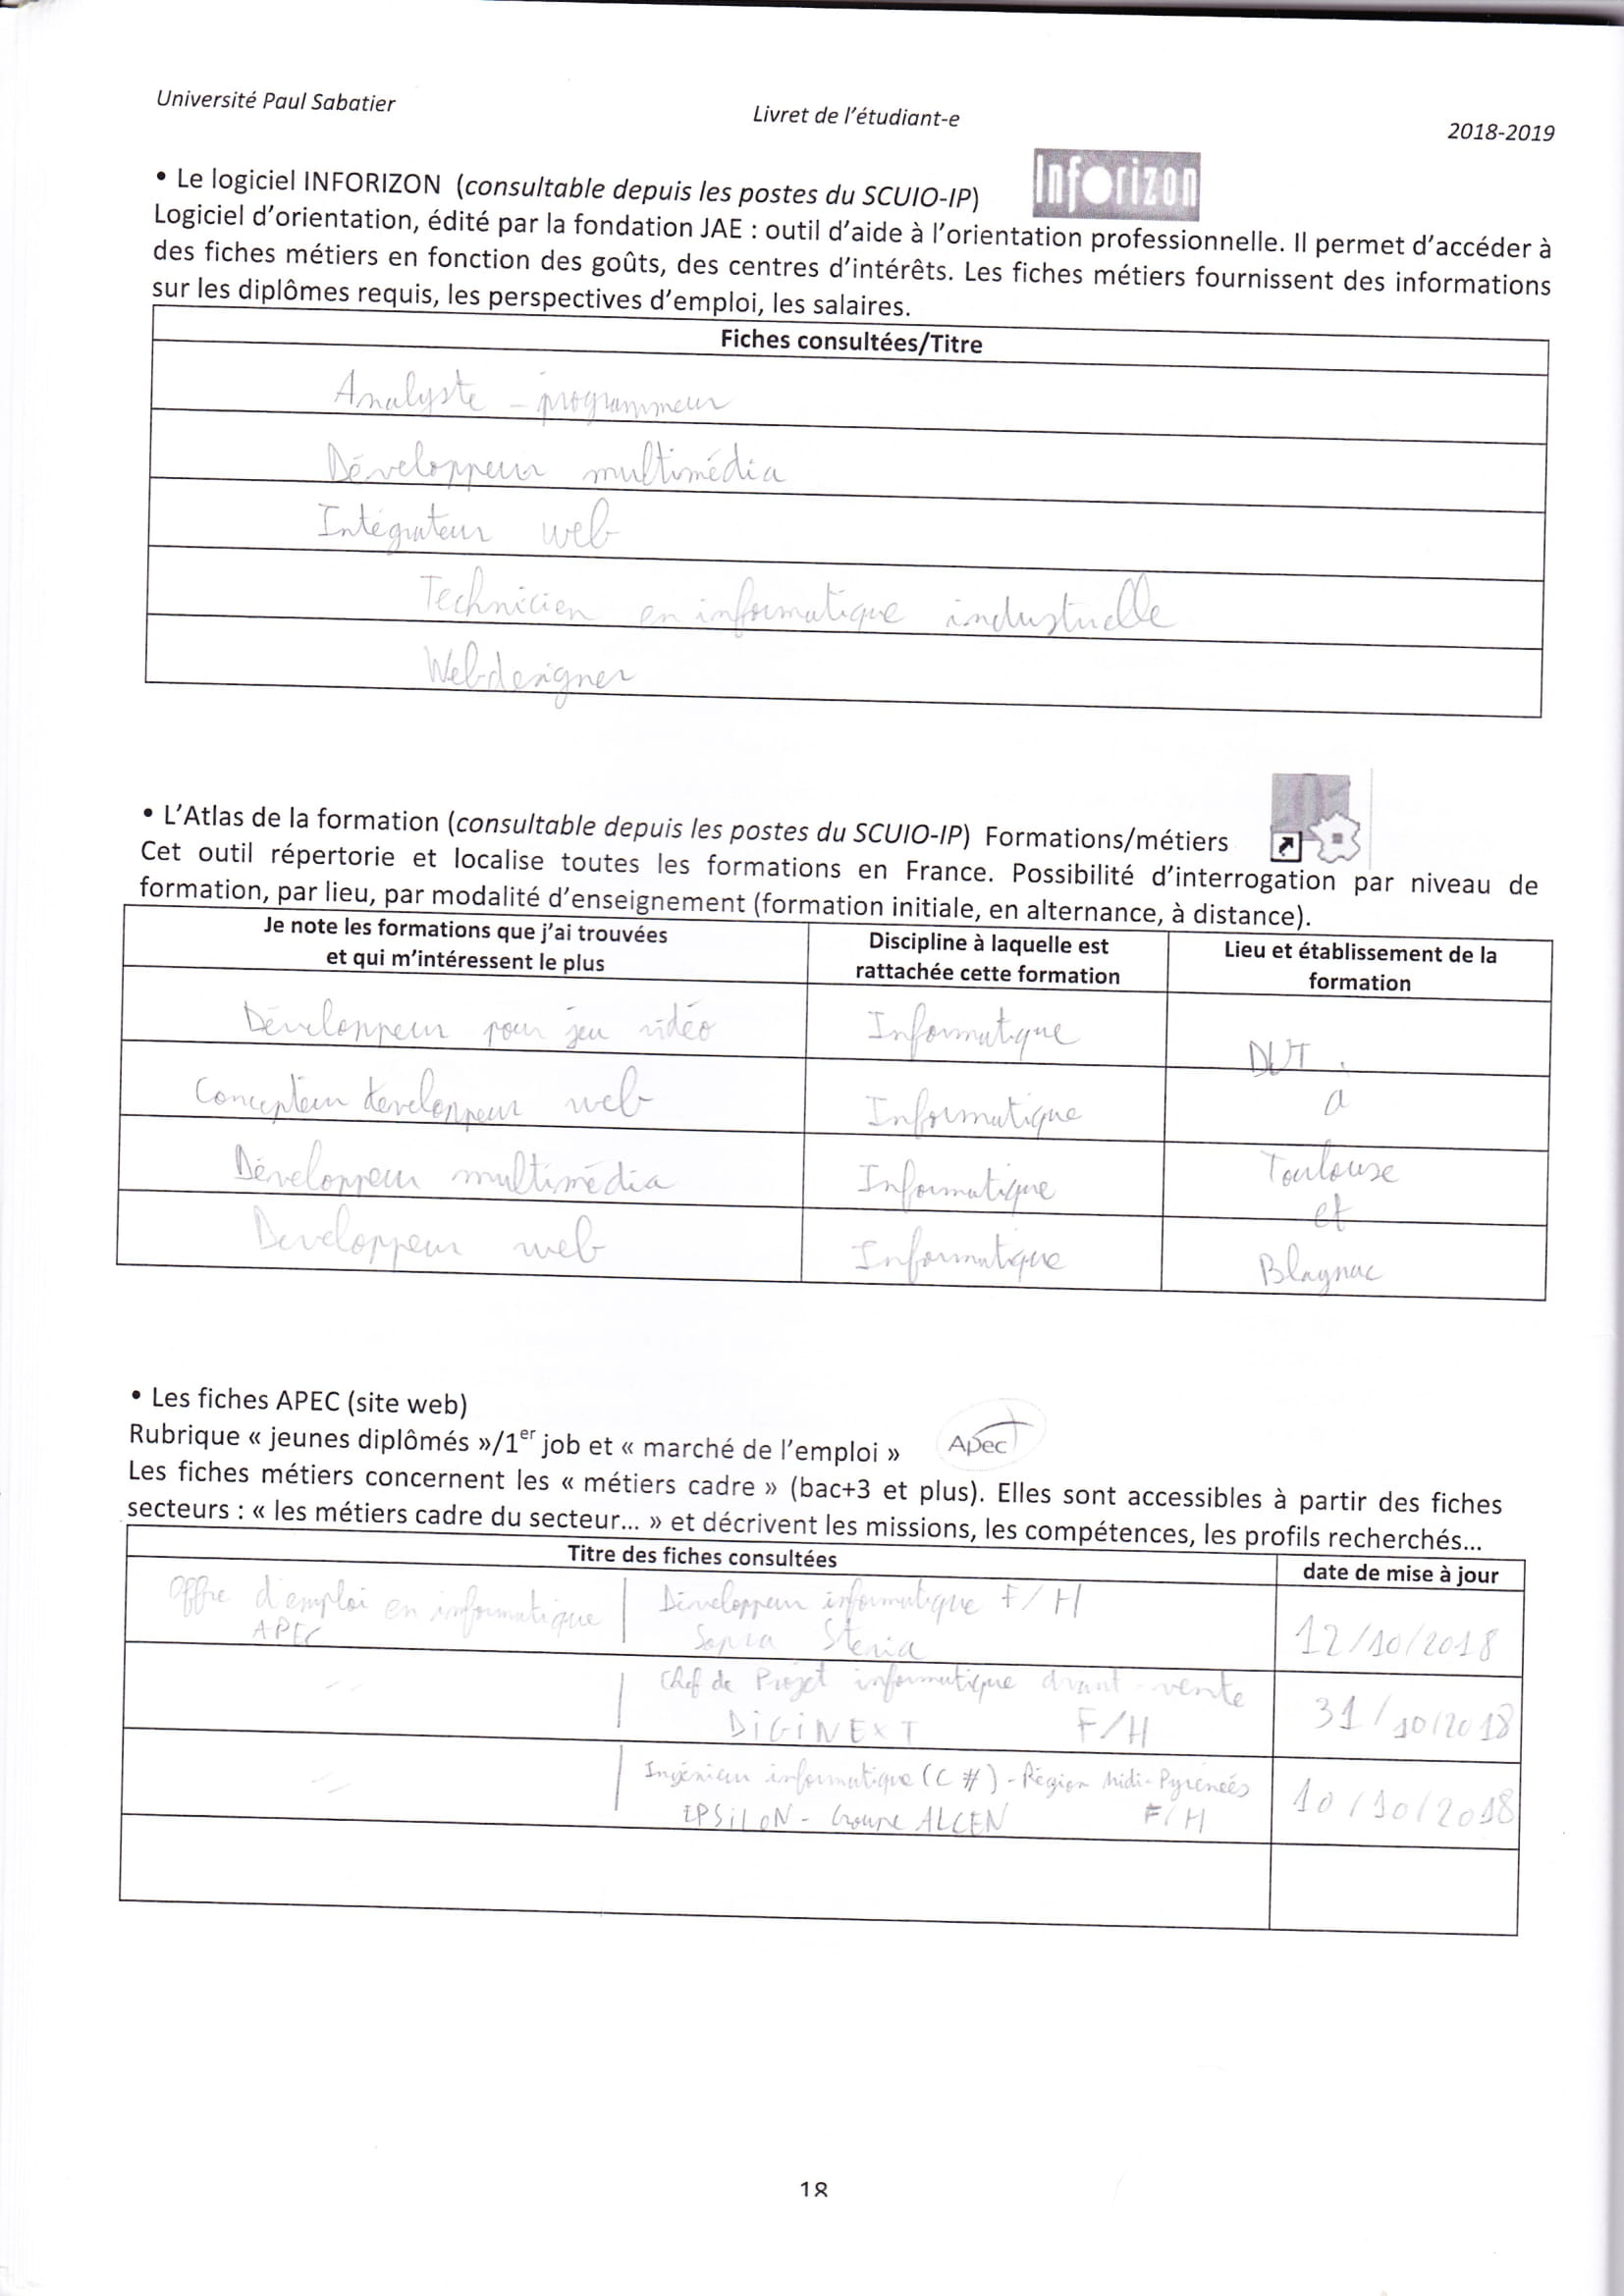 Université Paul Sabatier
Livret de l'étudiant-e
2018-2019
• Le logiciel INFORIZON (consultable depuis les postes du SCUIO-IP)
Inforizon
Logiciel d'orientation, édité par la fondation JAE : outil d'aide à l'orientation professionnelle. Il permet d'accéder à
des fiches métiers en fonction des goûts, des centres d'intérêts. Les fiches métiers fournissent des informations
sur les diplômes requis, les perspectives d'emploi, les salaires.
Fiches consultées/Titre
Analyste - programmeur
Développeur multimédia
Intégrateur web
Technicien en informatique industrielle
Webdesigner
• L'Atlas de la formation (consultable depuis les postes du SCUIO-IP) Formations/métiers
Cet outil répertorie et localise toutes les formations en France. Possibilité d'interrogation par niveau de
formation, par lieu, par modalité d'enseignement (formation initiale, en alternance, à distance).
Je note les formations que j'ai trouvées
et qui m'intéressent le plus
Discipline à laquelle est
rattachée cette formation
Lieu et établissement de la
formation
Développeur pour jeu vidéo
Informatique
DUT
Concepteur développeur web
Informatique
à
Développeur multimédia
Informatique
Toulouse
et
Developpeur web
Informatique
Blagnac
• Les fiches APEC (site web)
Rubrique « jeunes diplômés »/1er job et « marché de l'emploi »
Apec
Les fiches métiers concernent les « métiers cadre » (bac+3 et plus). Elles sont accessibles à partir des fiches
secteurs : « les métiers cadre du secteur... » et décrivent les missions, les compétences, les profils recherchés...
Titre des fiches consultées
date de mise à jour
Offre d'emploi en informatique
APEC
Développeur informatique F/H
Sopra Steria
12/10/2018
Chef de Projet informatique avant-vente
DiGiNEXT F/H
31/10/2018
Ingénieur informatique (C #) - Région Midi-Pyrénées
EPSiLON - Groupe ALCEN F/H
10/10/2018
18